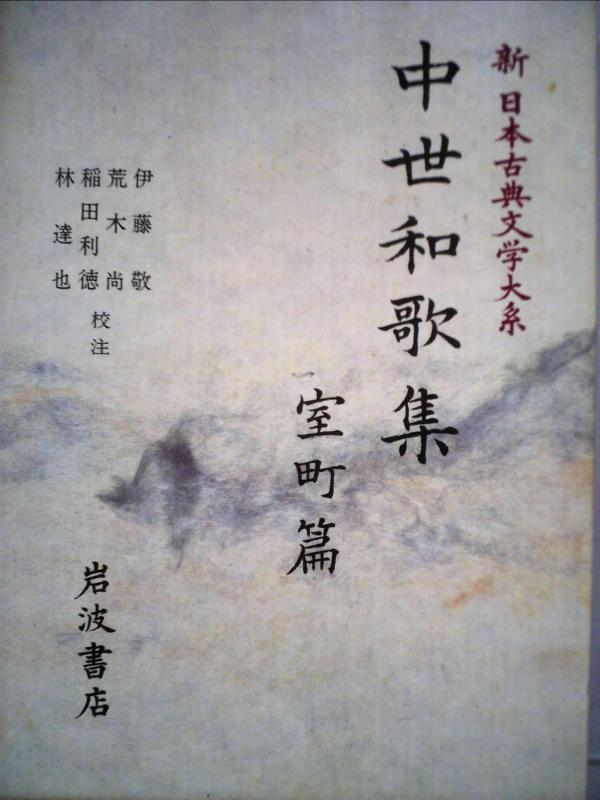 新 日本古典文学大系
中世和歌集
室町篇
伊藤敬
荒木尚
稲田利徳
林達也
校注
岩波書店